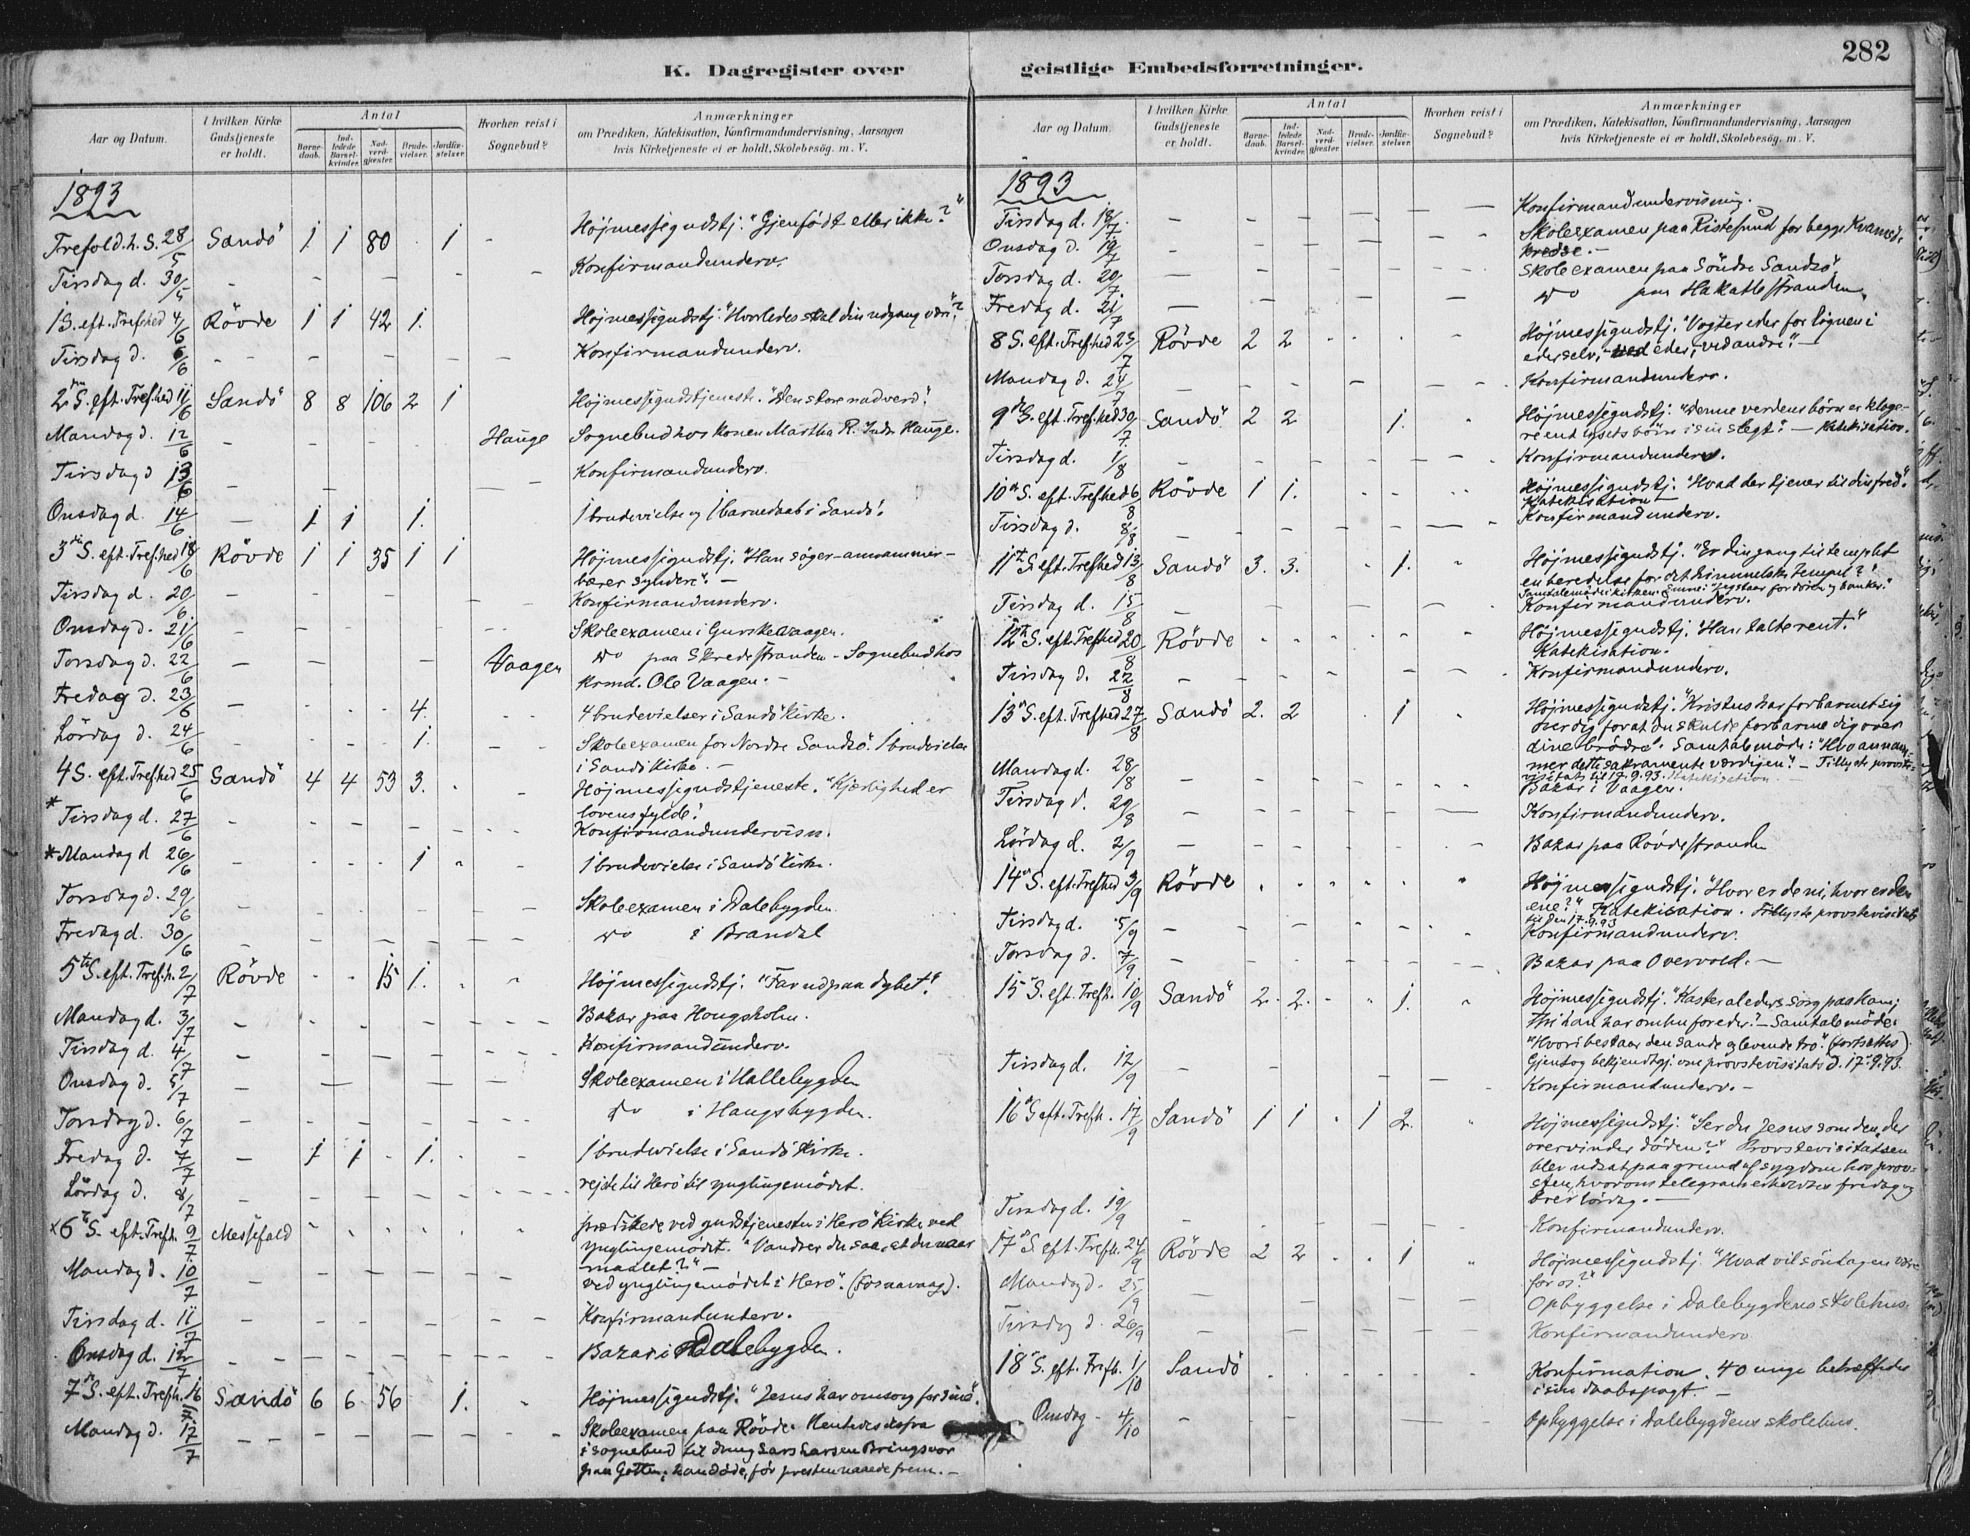 282
K. Dagregister over
geistlige Embedsforretninger.
Aar og Datum.
I hvilken Kirke Gudstjeneste er holdt.
Antal
Barnedaab.
Indledede Barselkvinder.
Nadverdgjæster.
Brudevielser.
Jordfæstelser.
Hvorhen reist i Sognebud?
Anmærkninger
om Prædiken, Katekisation, Konfirmandundervisning, Aarsagen
hvis Kirketjeneste ei er holdt, Skolebesög. m. V.
1893
Trefold.h.S. 28/5 Sandö 1 1 80 1 - Höjmessegudstj. "Gjenfödt eller ikke?"
Tirsdag d. 30/5 Konfirmandunderv.
1 S. eft. Trefhed 4/6 Rövde 1 1 42 1. Höjmessegudstj. "Hvorledes skal din udgang være"?
Tirsdag d. 6/6 Konfirmandunderv.
2 S. eft. Trefhed 11/6 Sandö 8 8 106 2 1 Höjmessegudstjeneste. "Den store nadverd".
Mandag d. 12/6 Hauge Sognebud hos konen Martha R. Indr. Hauge.
Tirsdag d 13/6 Konfirmandunderv.
Onsdag d. 14/6 - 1 1 1. 1 brudevielse og 1 barnedaab i Sandö.
3 S. eft. Trefhed 18/6 Rövde 1 1 35 1 1 Höjmessegudstj. "Han söger - annammer -
bærer syndere". -
Tirsdag d. 20/6 Konfirmandunderv.
Onsdag d. 21/6 Skoleexamen i Gurskevaagen.
Torsdag d. 22/6 Vaagen do paa Skredestranden - Sognebud hos
krmd. Ole Vaagen. -
Fredag d. 23/6 4. 4 brudevielser i Sandö kirke.
Lördag d. 24/6 1. Skoleexamen for Nordre Sandsö. 1 brudevielse
i Sandö kirke. -
4 S. eft. Trefhed 25/6 Sandö 4 4 53 3. Höjmessegudstjeneste. "Kjærlighed er
lovens fylde".
* Tirsdag d. 27/6 Konfirmandundervisn.
* Mandag d 26/6 1 1 brudevielse i Sandö kirke.
Torsdag d. 29/6 Skoleexamen i Dalebygden
Fredag d. 30/6 do i Brandal
5 S. eft. Tref.h. 2/7 Rövde 15 1. Höjmessegudstj: "Far ud paa dybet".
Mandag d. 3/7 Bazar paa Hougsholm.
Tirsdag d. 4/7 Konfirmandunderv.
Onsdag d. 5/7 Skoleexamen i Hallebygden
Torsdag d. 6/7 do i Haugsbygden.
Fredag d. 7/7 - 1 1 - 1. 1 brudevielse i Sandö kirke.
Lördag d. 8/7 rejste til Herö til ynglingemödet.
x 6 S. eft. Trefh. 9/7 Messefald prædikede ved gudstjenesten i Herö Kirke ved
ynglingemödet. "Vandrer du saa, at du naar
maalet?" -
Mandag d. 10/7 ved ynglingemödet i Herö. (Fosnavaag).
Tirsdag d. 11/7 Konfirmandunderv.
Onsdag d. 12/7 Bazar i Dalebygden.
7 S. eft. Trefh. 16/7 Sandö 6 6 56 1. Höjmessegudstj. "Jesus har omsorg for sine".
Mandag d. 17/7 Skoleexamen paa Rövde. Hentedes derfra
i sognebud til Lars Larsen Bringsvor
han döde, för presten naaede frem. -
Aar og Datum.
I hvilken Kirke Gudstjeneste er holdt.
Antal
Barnedaab.
Indledede Barselkvinder.
Nadverdgjæster.
Brudevielser.
Jordfæstelser.
Hvorhen reist i Sognebud?
Anmærkninger
om Prædiken, Katekisation, Konfirmandundervisning, Aarsagen
hvis Kirketjeneste ei er holdt, Skolebesög. m. V.
1893
Tirsdag d. 18/7 Konfirmandundervisning.
Onsdag d. 19/7 Skoleexamen paa Ristesund for begge
kredse. -
Torsdag d. 20/7 Skoleexamen paa Söndre Sandsö
Fredag d. 21/7 do paa Hakallestranden
8 S. eft. Trefhed 23/7 Rövde 2 2 Höjmessegudstj. "Vogter eder for lögnen i
eder selv, - eder, ved andre". -
Mandag d. 24/7 Konfirmandunderv.
9 S. eft. Trefhed 30/7 Sandö 2 2 1. Höjmessegudstj. "Denne verdens börn er kloge-
re end lysets börn i sin slegt". - Katekisation.
Tirsdag d. 1/8 Konfirmandunderv.
10 S. eft. Trefhed 6/8 Rövde 1 1. Höjmessegudstj. "Hvad der tjener til din fred".
Katekisation -
Tirsdag d. 8/8 Konfirmandunderv.
11 S. eft. Trefhed 13/8 Sandö 3. 3. 1. Höjmessegudstj. "Er din gang til templet
en beredelse for det himmelske tempel?"
Samtalemöde i kirken. Emne: "Jeg staar for dören og banker."
Tirsdag d. 15/8 Konfirmandunderv.
12 S. eft. Trefhed 20/8 Rövde Höjmessegudstj. "Han talte rent."
Katekisation.
Tirsdag d. 22/8 Konfirmandunderv.
13 S. eft. Trefhed 27/8 Sandö 2. 2 1 Höjmessegudstj. "Kristus har forbarmet sig
over dig for at du skulde forbarme dig over
dine brödre". Samtalemöde: "Hvo annam-
mer dette sakramente værdigen?" - Tillyst provste-
visitats til 17.9.93. Katekisation. -
Mandag d. 28/8 Bazar i Vaagen.
Tirsdag d. 29/8 Konfirmandunderv.
Lördag d. 2/9 Bazar paa Rövdestranden
14 S. eft. Trefhed 3/9 Rövde Höjmessegudstj. "Hvor er de ni, hvor er den
ene?" Katekisation. Tillyste provstevisitats
til den 17.9.93
Tirsdag d. 5/9 Konfirmandunderv.
Torsdag d. 7/9 Bazar paa Overvold. -
15 S. eft. Trefh. 10/9 Sandö 2. 2. 1. Höjmessegudstj. "Kaster al eders sorg paa Ham;
thi han har omhu for eder". - Samtalemöde:
"Hvori bestaar den sande og levende tro." (fortsattes)
Gjentog bekjendtgj. om provstevisitats d. 17.9.93.
Tirsdag d. 12/9 Konfirmandunderv. -
16 S eft. Trefh. 17/9 Sandö 1 1 1 2. Höjmessegudstj. "Ser du Jesus som den, der
overvinder döden?" Provstevisitatsen
blev udsat paa grund af sygdom hos prov-
sten, hvorom telegram erholdtes fredag og
brev lördag. -
Tirsdag d. 19/9 Konfirmandunderv.
17 S eft. Trefh. 24/9 Rövde 2 2 1 Höjmessegudstj. "Hvad vil söndagen være
for os?"
Mandag d. 25/9 Opbyggelse i Dalebygdens skolehus.
Tirsdag d. 26/9 Konfirmandunderv
18 S. eft. Trefh. 1/10 Sandö Konfirmation. 40 unge bekræftedes
i sin daabspagt. -
Onsdag - 4/10 Opbyggelse i Dalebygdens skolehus.